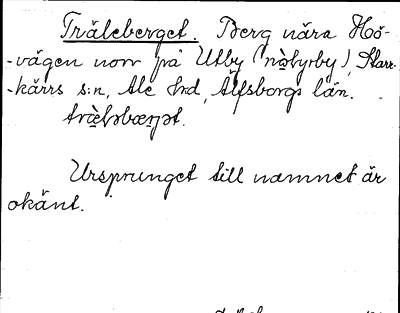 Träleberget. Berg nära Hö-
-vägen norr på Utby (), Starr-
-kärrs s:n, Ale hd, Älfsborgs län.
Ursprunget till namnet är
okänt.